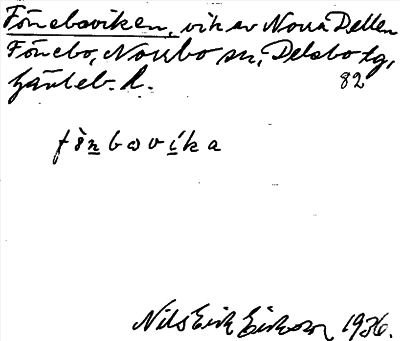 Fönebaviken, vik av Norra Dellen
Fönebo, Norrbo sn, Delsbo tg,
Gävleb. l. 82
fö̀nbωvíka
Nils Erik Eriksson 1936.